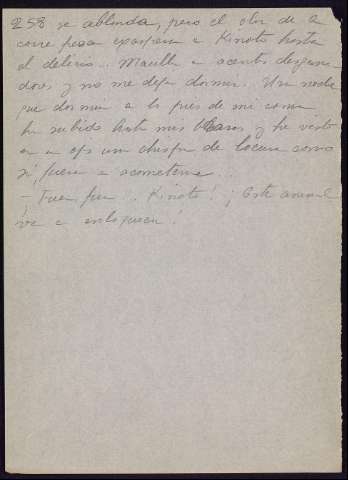 258 se ablanda, pero el olor de la
carne fresca exaspera a Kinoto hasta
el delirio... Maulla a acentos desgarra-
dores y no me deja dormir. Una noche
que dormía a los pies de mi cama
ha subido hasta mis brazos y he visto
en sus ojos una chispa de locura como
si fuera a acometerme...
- Fuera, fuera!.. Kinoto! ¡Este animal
va a enloquecer!